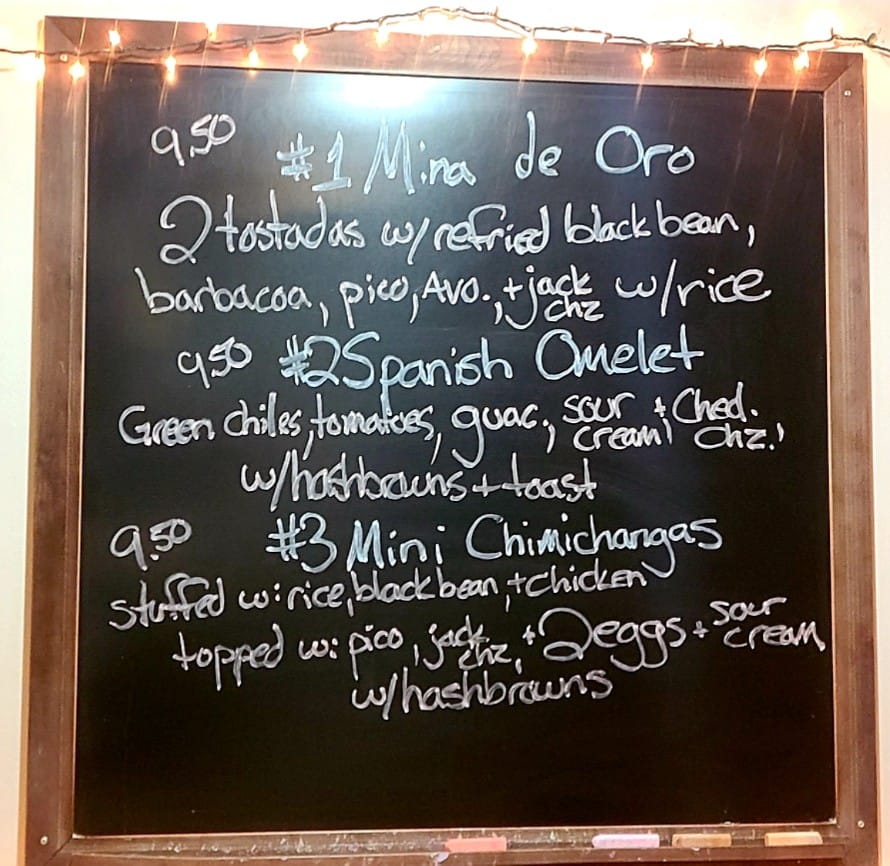 9.50 #1 Mina de Oro
2 tostadas w/ refried black bean,
barbacoa, pico, Avo., + jack chz w/rice
9.50 #2 Spanish Omelet
Green chiles, tomatoes, guac., sour cream, + Ched. chz.,
w/hashbrowns + toast
9.50 #3 Mini Chimichangas
stuffed w: rice, black bean, + chicken
topped w: pico, jack chz, + 2 eggs + sour cream
w/hashbrowns